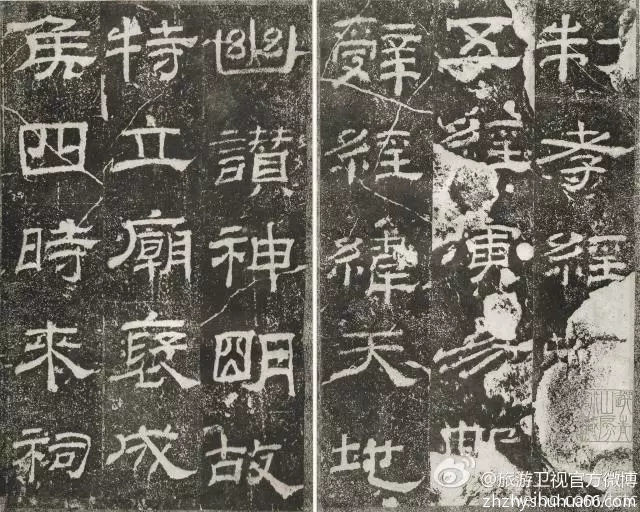 制孝經
五經演易繫
辭經緯天地
幽讚神明故
特立廟褒成
侯四時來祠
@旅游卫视官方微博